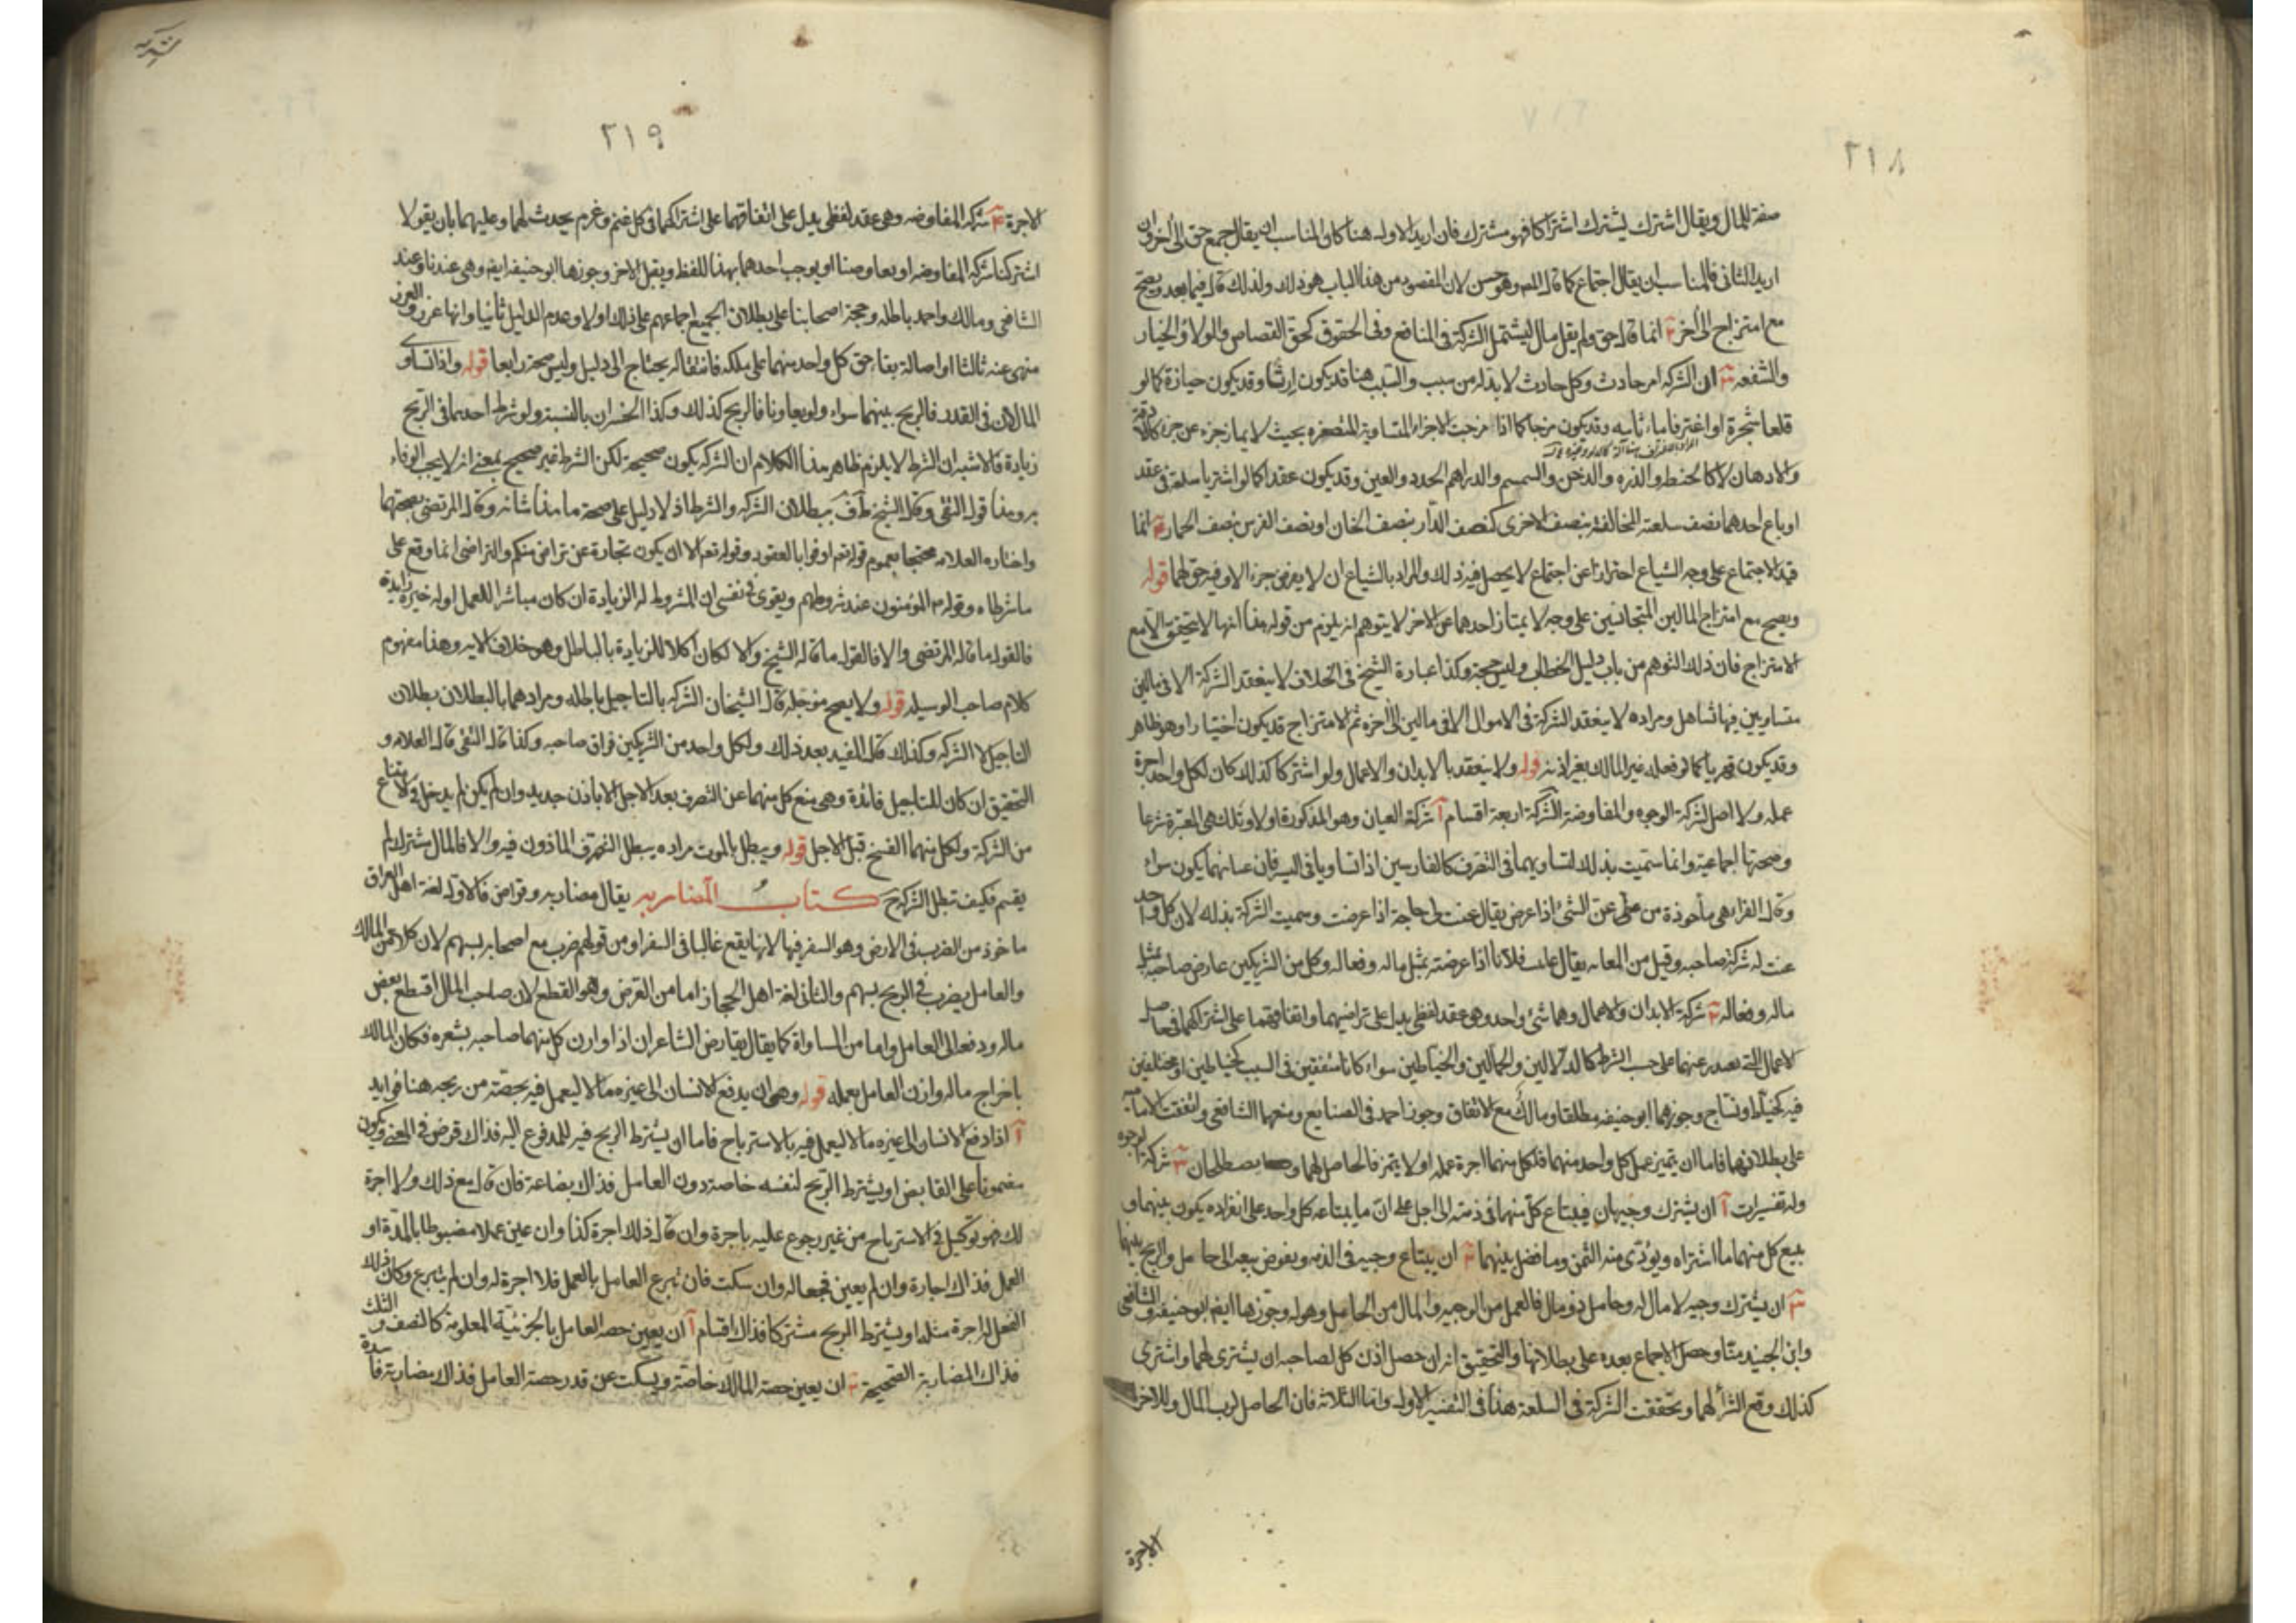 ٢١٨
صفة للمال ويقال اشترك يشترك اشتراكا فهو مشترك فان اريد الاول هنا كان المناسب ان يقال جمع حق الى آخر وان
اريد الثانى فالمناسب ان يقال اجتماع كما قاله المص وهو حسن لان المقصود من هذا الباب هو ذلك ولذلك قال فيما بعد ويصح
مع امتزاج الى آخر ٢ انما قال حق ولم يقل مال ليشتمل الشركة فى المنافع وفى الحقوق كحق القصاص والولاء والخيار
والشفعه ٣ ان الشركه امر حادث وكل حادث لا بد له من سبب والسبب هنا قد يكون ارثا وقد يكون حيازة كما لو
قلعا شجرة او اغترفا ماء بآنيه وقد يكون مزجا كما اذا مزجت الاجزاء المتساوية المتصغره بحيث لا يماز جزء عن جزء كالادقة
والادهان لا كالحنطه والذره والدخن والسمسم والدراهم الجدد والعين وقد يكون عقدا كما لو اشتريا سلعة فى عقد
او باع احدهما نصف سلعته المخالفة بنصف الاخرى كنصف الدار بنصف الخان او نصف الفرس بنصف الحمار ٤ انما
قيد الاجتماع على وجه الشياع احترازا عن اجتماع لا يحصل فيه ذلك والمراد بالشياع ان لا يعرض جزء الا وفيه حق لهما قوله
ويصح مع امتزاج المالين المتجانسين على وجه لا يمتاز احدهما عن الاخر لا يتوهم انه يلزم من قوله هذا انها لا يتحقق الا مع
الامتزاج فان ذلك التوهم من باب دليل الخطاب وليس حجة وكذا عبارة الشيخ فى الخلاف لا ينعقد الشركة الا فى مالين
متساويين فيها تساهل ومراده لا ينعقد الشركة فى الاموال الا فى مالين الى آخره ثم الامتزاج قد يكون اختيارا وهو ظاهر
وقد يكون قهريا كما لو فعله غير المالك بغير اذنه قوله ولا ينعقد بالابدان والاعمال ولو اشتركا كذلك كان لكل واحد اجرة
عمله ولا اصل لشركة الوجوه والمفاوضة الشركة اربعة اقسام آ شركة العيان وهو المذكورة اولا وتلك هى المعتبرة شرعا
وصحتها اجماعية وانما سميت بذلك لتساويهما فى التصرف كالفارسين اذا تساويا فى السير فان عنانهما يكون سواء
وقال الفراء هى مأخوذة من عن الشئ اذا عرض يقال عنت لى حاجة اذا عرضت وسميت الشركة بذلك لان كل واحد
عنت له شركة صاحبه وقيل من المعانه يقال عاننت فلانا اذا عرضته بمثل ماله وفعاله وكل من الشريكين عارض صاحبه بمثل
ماله وفعاله ٢ شركة الابدان والاعمال وهما شئ واحد وهو عقد لفظى يدل على تراضيهما واتفاقهما على اشتراكهما فى حاصل
الاعمال التى تصدر عنهما على حسب الشرط كالدلالين والحمالين والخياطين سواء كانا متفقين فى السبب كخياطين او مختلفين
فيه كخياط ونساج وجوزهما ابو حنيفه مطلقا ومالك مع الاتفاق وجوز احمد فى الصنايع ومنعها الشافعى واتفقت الامامية
على بطلانهما فاما ان يتميز عمل كل واحد منهما فلكل منهما اجرة عمله او لا يتميز فالحاصل لهما و يصطلحان ٣ شركة الوجوه
وله تفسيرات آ ان يشترك وجيهان فيبتاع كل منهما فى ذمته الى اجل على ان ما يبتاعه كل واحد على انفراده يكون بينهما و
يبيع كل منهما ما اشتراه ويؤدى منه الثمن وما فضل بينهما ٢ ان يبتاع وجيه فى الذمه ويفوض بيعه الى خامل والربح بينهما
٣ ان يشترك وجيه لا مال له وخامل ذو مال فالعمل من الوجيه والمال من الخامل وهو له وجوزها ايضا ابو حنيفه والشافعى
وابن الجنيد منا وحصل الاجماع بعده على بطلانها والتحقيق انه ان حصل اذن كل لصاحبه ان يشترى لهما واشترى
كذلك وقع الشرأ لهما وتحققت الشركة فى السلعة هذا فى التفسير الاول واما الثلاثه فان الحاصل لرب المال وللاخر
الاجرة
٢١٩
الاجرة ٤ شركه المفاوضه وهى عقد لفظى يدل على اتفاقهما على اشتراكهما فى كل غنم وغرم يحدث لهما وعليهما بان يقولا
اشتركنا شركه المفاوضه او تفاوضنا او يوجب احدهما بهذا اللفظ ويقبل الاخر وجوزها ابو حنيفه ايضا وهى عندنا وعند
الشافعى ومالك واحمد باطله وحجة اصحابنا على بطلان الجميع اجماعهم على ذلك اولا وعدم الدليل ثانيا وانها غرر والغرر
منهى عنه ثالثا او اصالة بقاء حق كل واحد منهما على ملكه فانتقاله يحتاج الى دليل وليس صحة رابعا قوله واذا تساوى
المالان فى القدر فالربح بينهما سواء ولو تفاوتا فالربح كذلك وكذا الخسران بالنسبة ولو شرط احدهما فى الربح
زيادة فالاشبه ان الشرط لا يلزم ظاهر هذا الكلام ان الشركه يكون صحيحة لكن الشرط غير صحيح بمعنى انه لا يجب الوفاء
به وهذا قول التقى وقال الشيخ ببطلان الشركه والشرط اذ لا دليل على صحة ما هذا شانه وقال المرتضى بصحتهما
واختاره العلامه محتجا بعموم قوله تعم اوفوا بالعقود وقوله تعم الا ان يكون تجارة عن تراض منكم والتراضى انما وقع على
ما شرطاه وقوله المؤمنون عند شروطهم ويقوى فى نفسى ان المشروط له الزيادة ان كان مباشرا للعمل او له خبرة زايدة
فالقول ما قاله المرتضى والا فالقول ما قاله الشيخ والا لكان اكلا للزيادة بالباطل وهو خلاف الايه وهذا مفهوم
كلام صاحب الوسيله قوله ولا يصح مؤجلة قال الشيخان الشركه بالتاجيل باطله ومرادهما بالبطلان بطلان
التاجيل لا الشركه وكذلك قال المفيد بعد ذلك ولكل واحد من الشريكين فراق صاحبه وكذا قال التقى قال العلامه و
التحقيق ان كان للتاجيل فائدة وهى منع كل منهما عن التصرف بعد الاجل الا باذن جديد وان لم يكن لم يدخل فى الامتناع
من الشركة ولكل منهما الفسخ قبل الاجل قوله ويبطل بالموت مراده يبطل التصرف الماذون فيه والا فالمال مشترك لم
يقسم فكيف تبطل الشركة ح كتاب المضاربه يقال مضاربه وقراض فالاول لغة اهل العراق
ماخوذ من الضرب فى الارض وهو السفر فيها لانها يقع غالبا فى السفر او من قولهم ضرب مع اصحابه بسهم لان كلا من المالك
والعامل يضرب فى الربح بسهم والثانى لغة اهل الحجاز اما من القرض وهو القطع لان صاحب المال اقتطع بعض
ماله ودفعه الى العامل واما من المساواة كما يقال تقارض الشاعران اذا وازن كل منهما صاحبه بشعره فكان المالك
باخراج ماله وازن العامل بعمله قوله وهى ان يدفع الانسان الى غيره مالا ليعمل فيه بحصة من ربحه هنا فوايد
آ اذا دفع الانسان الى غيره مالا ليعمل فيه بالاسترباح فاما ان يشترط الربح فيه للمدفوع اليه فذاك قرض فى المعنى ويكون
مضمونا على القابض او يشترط الربح لنفسه خاصة دون العامل فذاك بضاعة فان قال مع ذلك ولا اجرة
لك فهو توكيل فى الاسترباح من غير رجوع عليه باجرة وان قال ذلك اجرة كذا وان عين عملا مضبوطا بالمدة او
العمل فذاك اجارة وان لم يعين فجعاله وان سكت فان تبرع العامل بالعمل فلا اجرة له وان لم يتبرع وكان ذلك
الفعل له اجرة مثله او يشترط الربح مشتركا فذاك اقسام آ ان يعين حصه العامل بالجزئية المعلومة كالنصف والثلث
فذاك المضاربة الصحيحة ٢ ان يعين حصة المالك خاصة ويسكت عن قدر حصة العامل فذاك مضاربة فاسدة